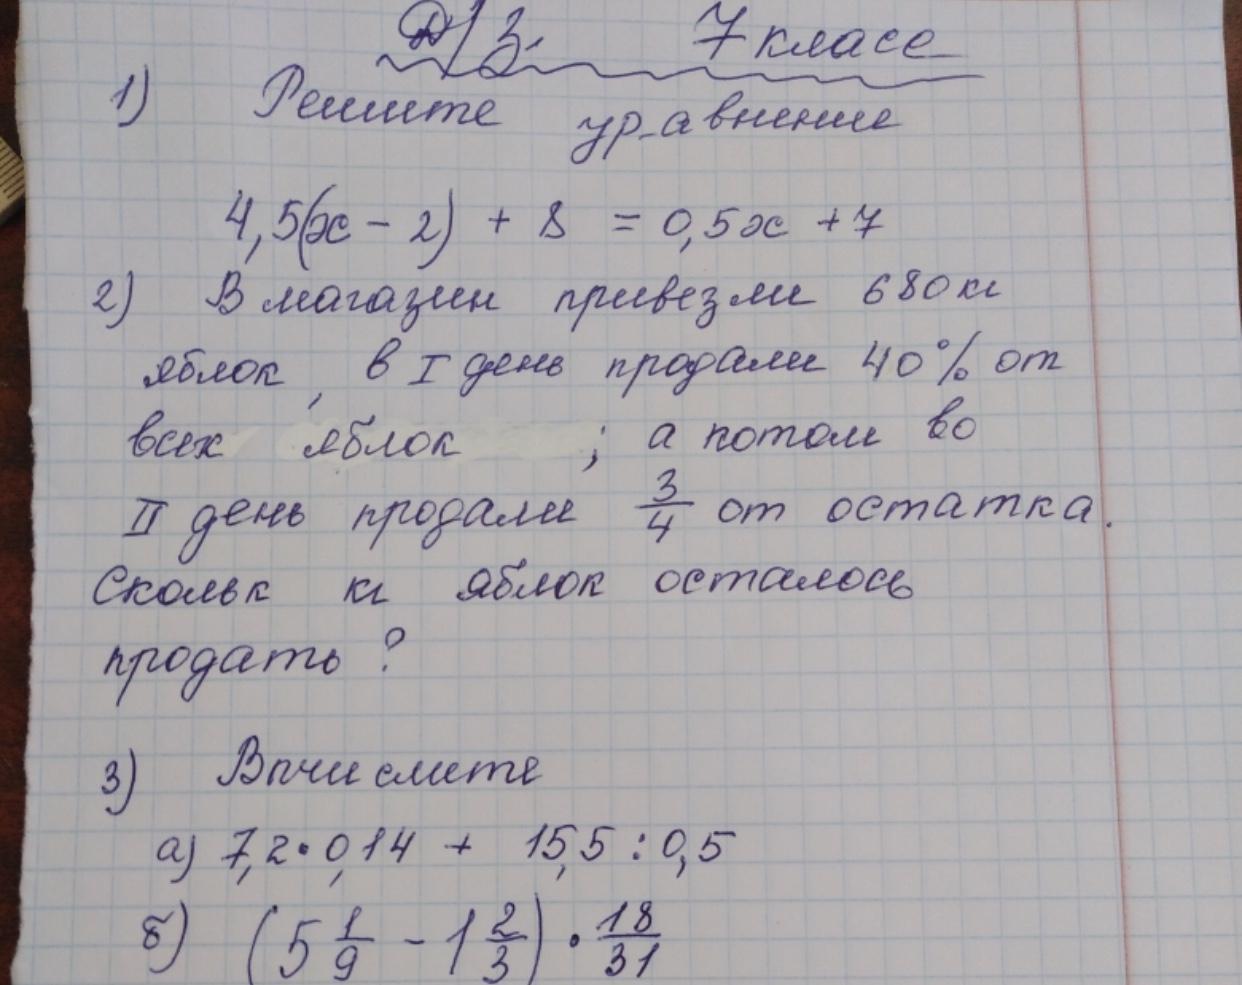 Д/З. 7 класс
1) Решите уравнение
4,5(x - 2) + 8 = 0,5x + 7
2) В магазин привезли 680 кг
яблок, в I день продали 40% от
всех яблок ; а потом во
II день продали 3/4 от остатка.
Скольк кг яблок осталось
продать ?
3) Вычислите
а) 7,2 · 0,14 + 15,5 : 0,5
б) (5 1/9 - 1 2/3) · 18/31